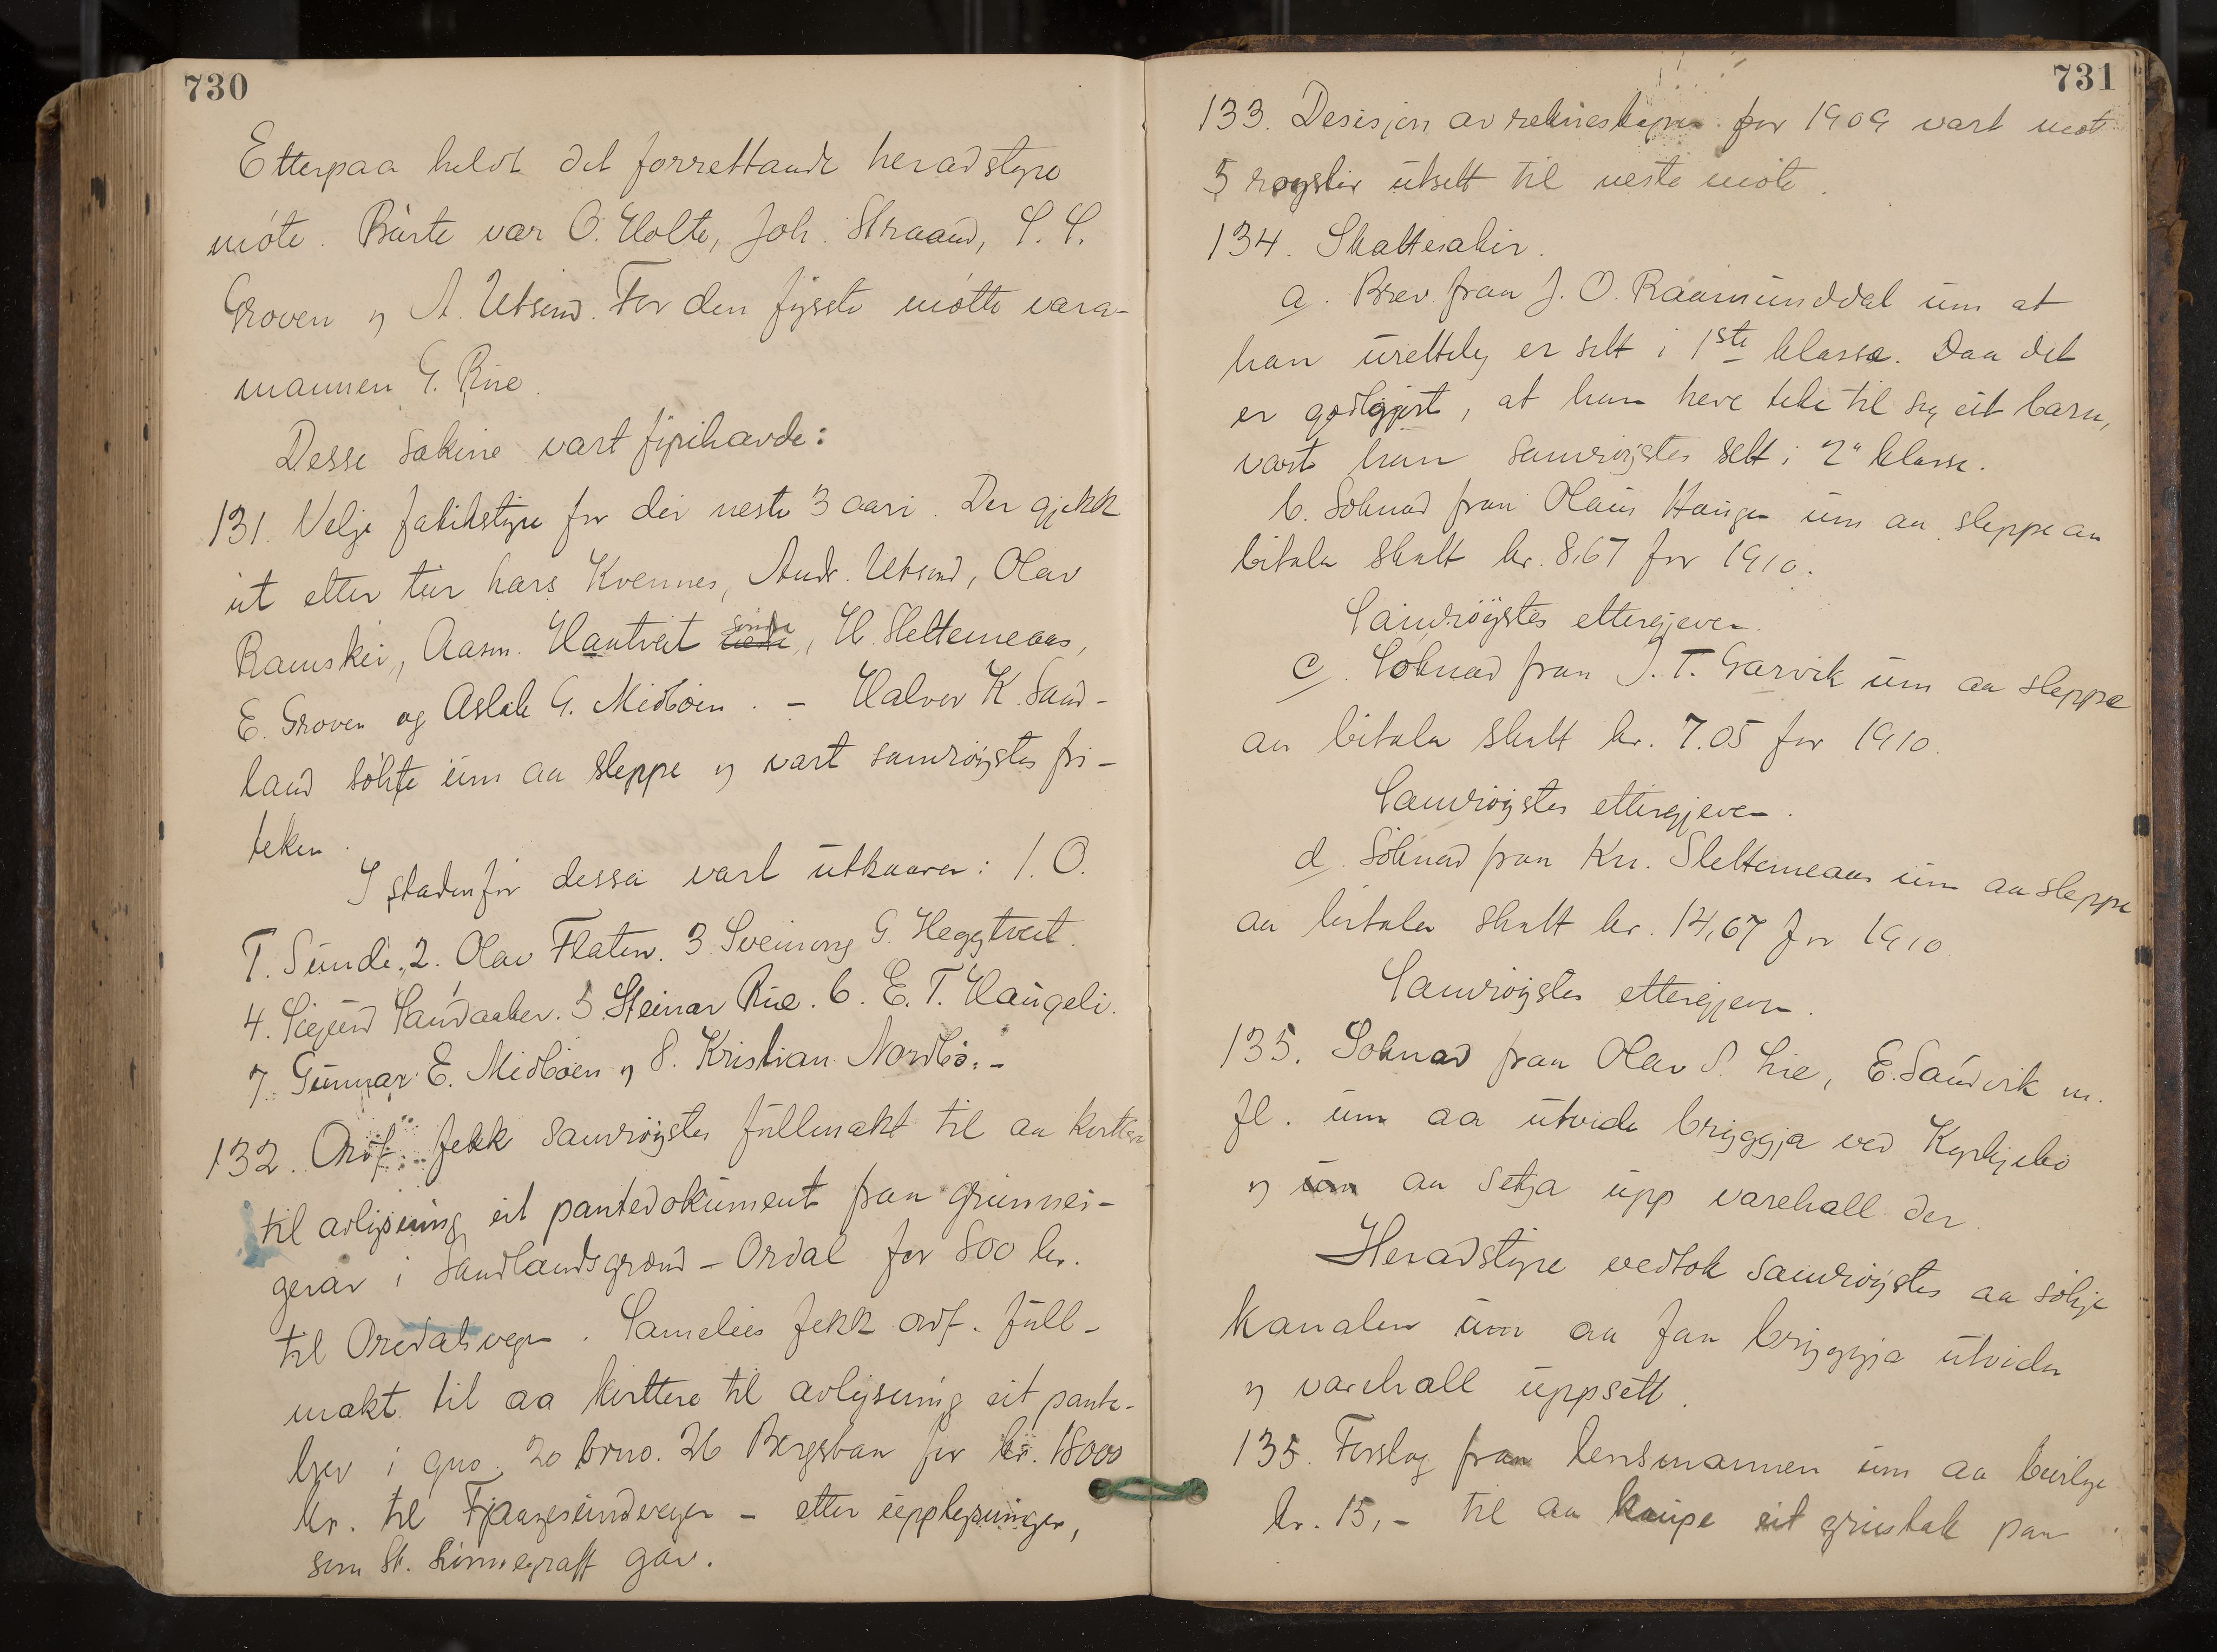 730
Etterpaa heldt det forrettande heradstyre
møte. Burte var O. Holte, Joh. Straand, S. S.
Groven og A. Utsund. For den fysste møtte vara-
mannen G. Rue.
Desse sakine vart fyrihavde:
131. Velje fatikstyre for dei neste 3 aari. Der gjekk
ut etter tur Lars Kvennes, Andr. Utsund, Olav
Ramskei, Aasm. Hantveit søndre, H. Sletteneaas,
E. Groven og Aslak G. Midbøen. - Halvor K. Sand-
land søkte um aa sleppe og vart samrøystes fri-
teken.
I stadenfor dessa vart utkaaren: 1. O.
T. Sunde. 2. Olav Flaten. 3. Sveinung G. Heggtveit.
4. Sigurd Sandaaker. 5. Steinar Rue. 6. E. T. Haugeli.
7. Gunnar E. Midbøen og 8. Kristian Nordbø. -
132. Ordf. fekk samrøystes fullmakt til aa kvittera
til avlysning eit pantedokument fraa grunnei-
gerar i Sandlandsgrend - Ordal for 800 kr.
til Oredalsvegen. Sameleis fekk ordf. full-
makt til aa kvittere til avlysning eit pante-
brev i gno. 20 brno. 26 Bergsbau for kr. 18000
kr. til Fjaagesundvegen - etter upplysningar,
som St. Finnegraff gav.
731
133. Desisjon av rekneskapen for 1909 vart mot
5 røyster utsett til neste møte.
134. Skattesaker.
a. Brev fraa J. O. Raamunddal um at
han urettely er sett i 1ste klasse. Daa det
er godtgjort, at han heve teke til seg eit barn,
vart han samrøystes sett i 2" klasse.
b. Søknad fraa Olaus Haugen um aa sleppe aa
bitala skatt kr. 8,67 for 1910.
Samrøystes ettergjeven.
c. Søknad fraa J. T. Garvik um aa sleppe
aa bitala skatt kr. 7.05 for 1910.
Samrøystes ettergjeven.
d. Søknad fraa Kn. Sletteneaas um aa sleppe
aa bitala skatt kr. 14,67 for 1910.
Samrøystes ettergjeven.
135. Søknad fraa Olav S. Lie, E. Sandvik m.
fl. um aa utvide bryggja ved Kyrkjebø
og um aa setja upp varehall der.
Heradstyre vedtok samrøystes aa søkje
Kanalen um aa faa bryggja utvida
og varehall uppsett.
135. Forslag fraa lensmannen um aa løyve
kr. 15,- til aa kaupe eit grustak paa